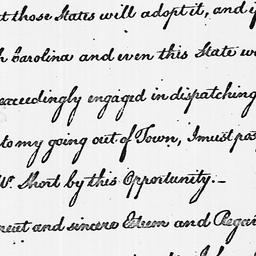 t those States will adopt it, and if
h Carolina and even this State w
exceedingly engaged in dispatching
to my going out of Town, I must pa
Wm. Short by this Opportunity. –
reat and sincere Esteem and Regar